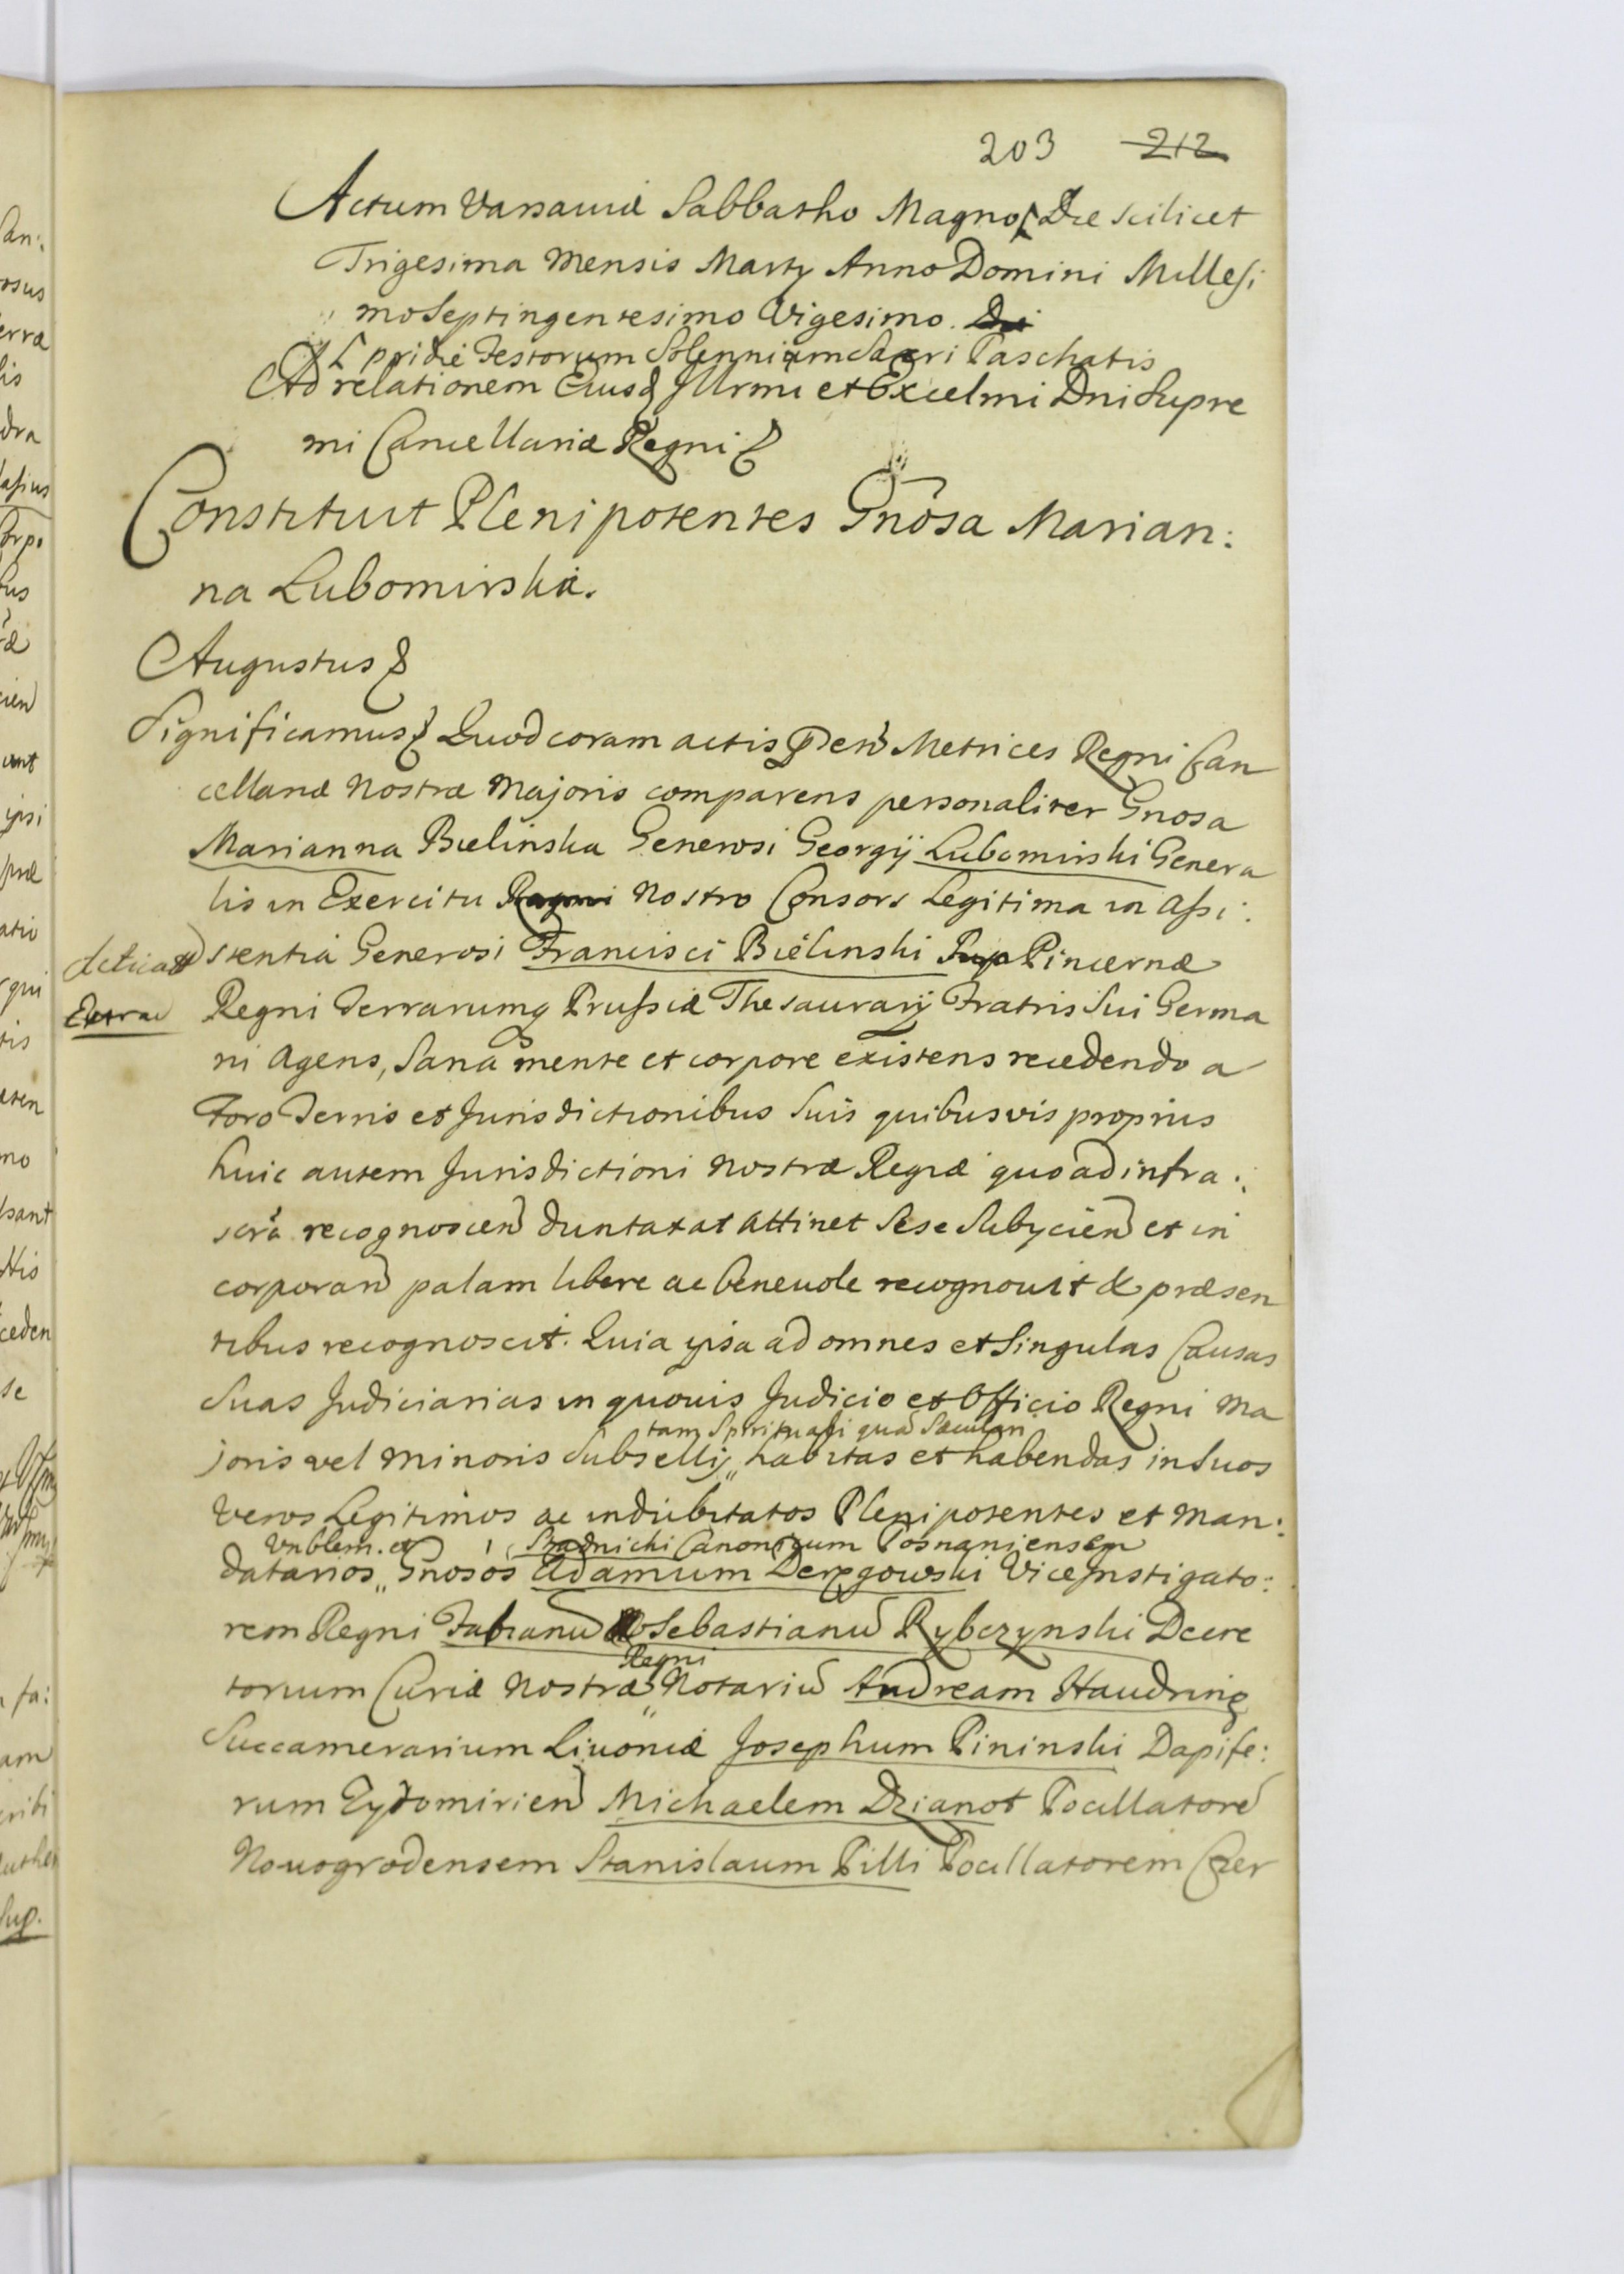 203 212
Actum Varsaviæ Sabbatho Magno Die scilicet
Trigesima Mensis Martÿ Anno Domini Millesi
mo Septingentesimo Vigesimo. Dni
pridie Festorum Solennium Sacri Paschatis
Ad relationem Eiusd Illrmi et Excelmi Dni Supre
mi Cancellariæ Regni
Constituit Plenipotentes Gnosa Marian:
na Lubomirska.
Augustus
Significamus Quod coram actis Metrices Regni Can
cellariæ Nostræ Majoris comparens personaliter Gnosa
Marianna Bielinska Generosi Georgij Lubomirski Genera
lis in Exercitu Regni Nostro Consors Legitima in Assi:
stentia Generosi Francisci Bielinski Sup Pincernæ
Regni Terrarumq Prussiæ Thesaurarij Fratris Sui Germa
Extrac
ni Agens, Sana mente et corpore existens recedendo a
Foro Terris et Jurisdictionibus Suis quibusvis proprijs
huic autem Jurisdictioni Nostræ Regiæ quo ad infra:
scrà recognoscen duntaxat attinet Sese Subijcien et in
corporan palam libere ac benevole recognovit & præsen
tibus recognoscit. Quia ipsa ad omnes et Singulas Causas
Suas Judiciarias in quovis Judicio et Officio Regni Ma
tam Spirituali quã Sæculari
joris vel Minoris Subsellij,, habitas et habendas in Suos
Veros Legitimos ac indubitatos Plenipotentes et Man:
Vnblem. et Stadnicki Canonicum Posnaniensem
datarios,, Gnosos Adamum Derpgowski Vice Instigato:
rem Regni Fabianũ Sebastianũ Rybczynski Decre
Regni
torum Curiæ Nostræ,, Notariũ Andream Haudring
Succamerarium Livoniæ Josephum Pininski Dapife:
rum Zytomirien Michaelem Dzianot Pocillatorẽ
Novogrodensem Stanislaum Pilli Pocillatorem Czer